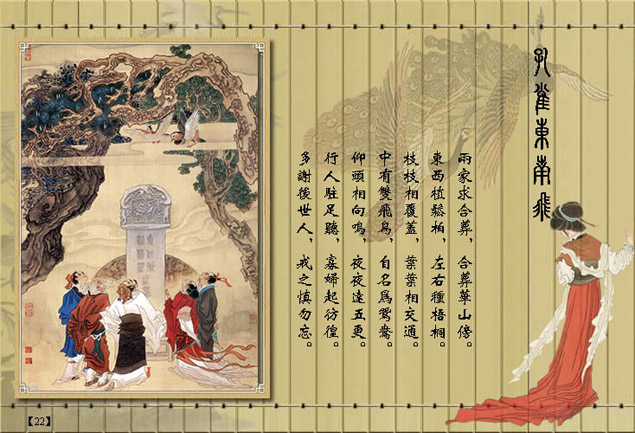 孔雀東南飛
兩家求合葬，合葬華山傍。
東西植鬆柏，左右種梧桐。
枝枝相覆蓋，葉葉相交通。
中有雙飛鳥，自名爲鴛鴦。
仰頭相向鳴，夜夜達五更。
行人駐足聽，寡婦起彷徨。
多謝後世人，戒之慎勿忘。
【22】